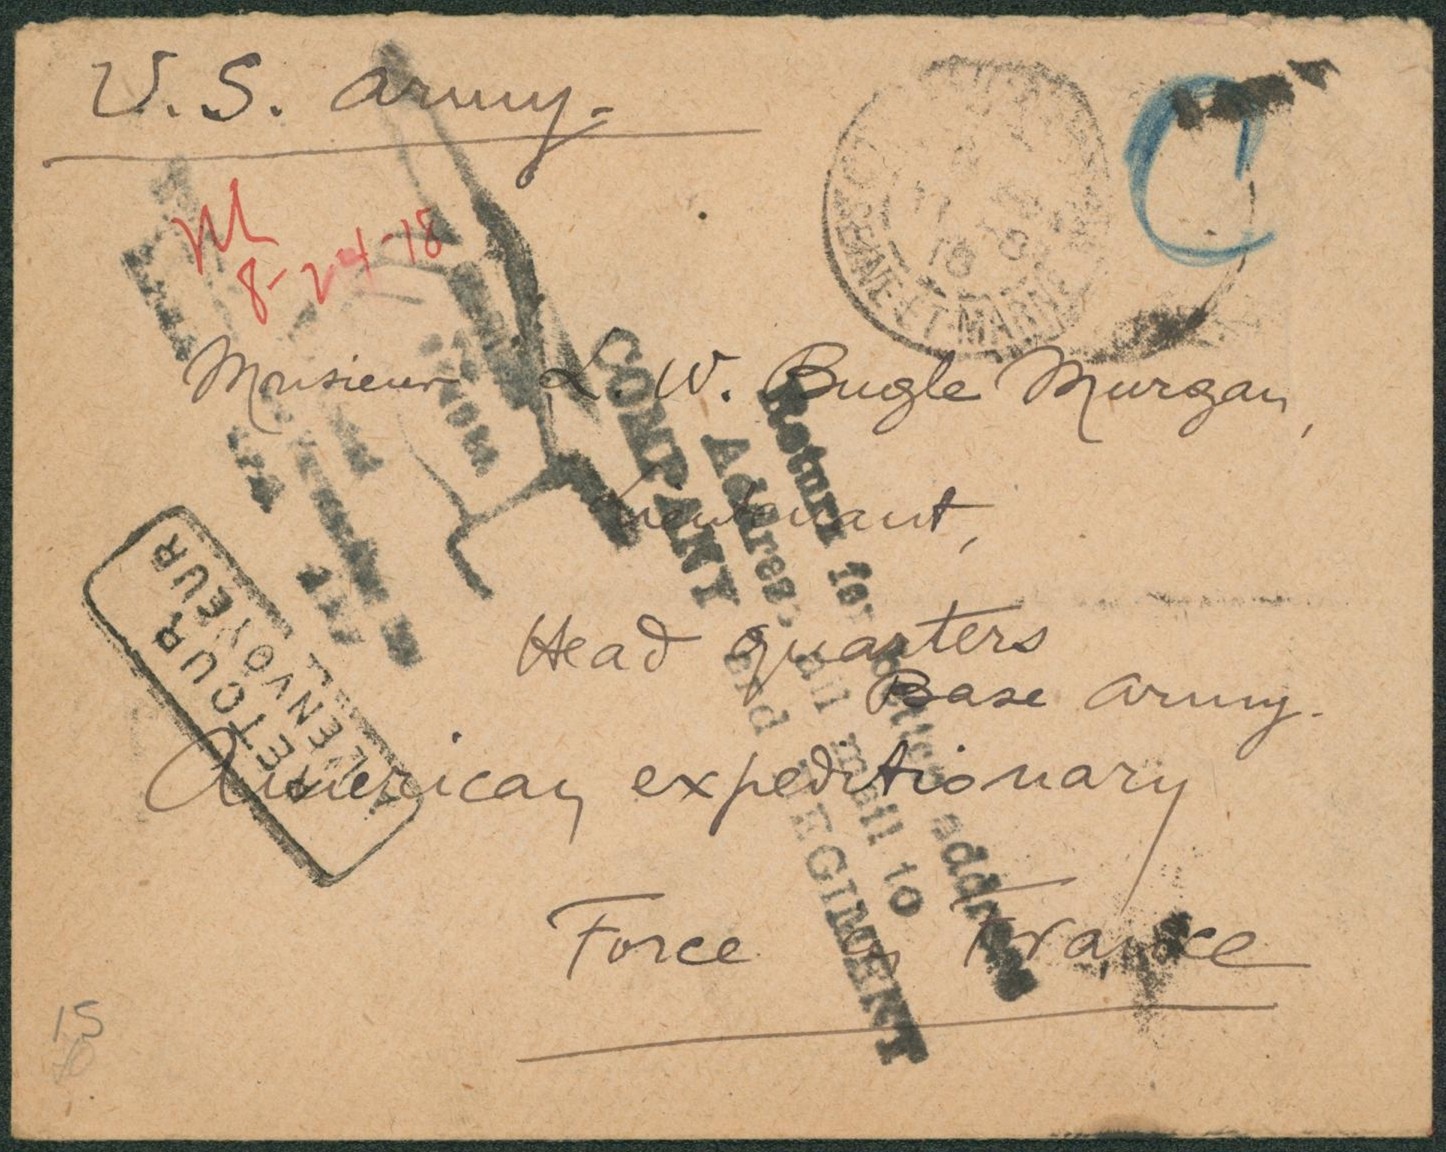 U.S. Army.
8-24-18
C
SEINE-ET-MARNE
Monsieur L. W. Bugle Murgan,
Lieutenant,
Head quarters
Base Army.
American expeditionary
Force France
Return for better address
Address all mail to
COMPANY and REGIMENT
RETOUR
À L'ENVOYEUR
15